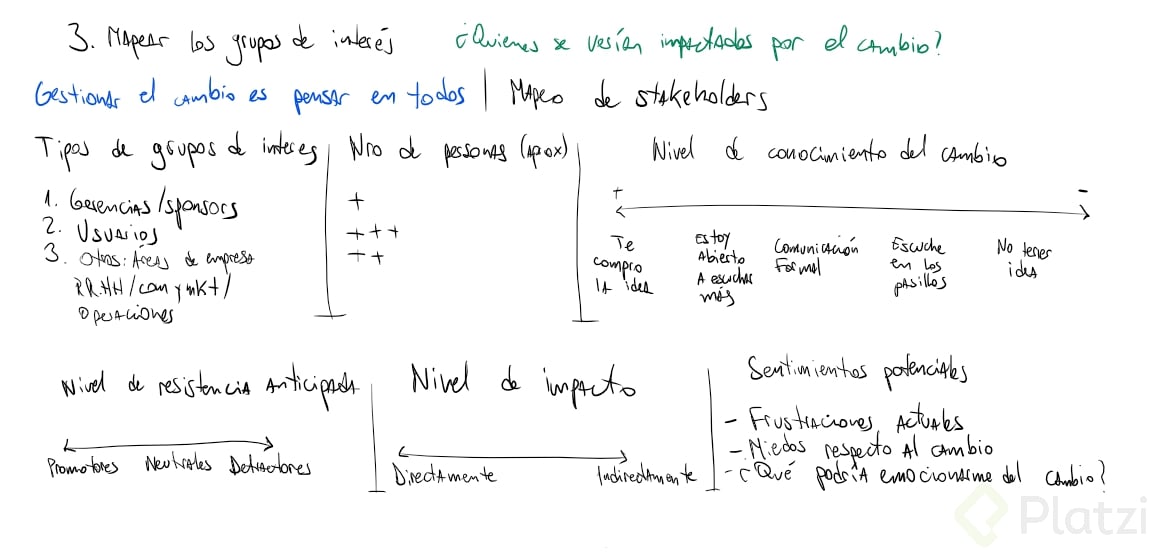 3. Mapear los grupos de interés ¿Quienes se verían impactados por el cambio?
Gestionar el cambio es pensar en todos | Mapeo de stakeholders
Tipos de grupos de interes
1. Gerencias/sponsors
2. Usuarios
3. Otros: Áreas de empresa
RRHH/com y mkt/
Operaciones
Nro de personas (apox)
+
+++
++
Nivel de conocimiento del cambio
+ -
Te
compro
la idea
Estoy
Abierto
A escuchar
más
Comunicación
Formal
Escuche
en los
pasillos
No tener
idea
Nivel de resistencia anticipada
Promotores Neutrales Detractores
Nivel de impacto
Directamente Indirectamente
Sentimientos potenciales
- Frustraciones Actuales
- Miedos respecto al cambio
- ¿Qué podría emocionarme del cambio?
Platzi